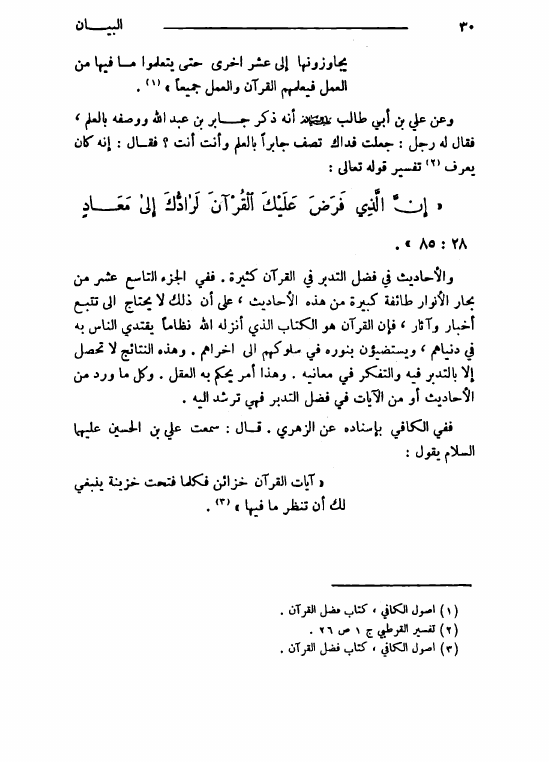 ٣٠ البيـــان
يجاوزونها إلى عشر اخرى حتى يتعلموا مـا فيها من
العمل فيعلمهم القرآن والعمل جميعاً » (١) .
وعن علي بن أبي طالب أنه ذكر جـــابر بن عبد الله ووصفه بالعلم ،
فقال له رجل : جعلت فداك تصف جابراً بالعلم وأنت أنت ؟ فقـــال : إنه كان
يعرف (٢) تفسير قوله تعالى :
« إِنَّ الَّذِي فَرَضَ عَلَيْكَ الْقُرْآنَ لَرَادُّكَ إِلىٰ مَعَـــادٍ
٢٨ : ٨٥ » .
والأحاديث في فضل التدبر في القرآن كثيرة . ففي الجزء التاسع عشر من
بحار الأنوار طائفة كبيرة من هذه الأحاديث ، على أن ذلك لا يحتاج الى تتبـع
أخبار وآثار ، فإن القرآن هو الكتاب الذي أنزله الله نظاماً يقتدي الناس به
في دنياهم ، ويستضيؤن بنوره في سلوكهم الى اخراهم . وهذه النتائج لا تحصل
إلا بالتدبر فيه والتفكر في معانيه . وهذا أمر يحكم به العقل . وكل ما ورد من
الأحاديث أو من الآيات في فضل التدبر فهي ترشد اليه .
ففي الكافي بإسناده عن الزهري . قـــال : سمعت علي بن الحسين عليهما
السلام يقول :
« آيات القرآن خزائن فكلما فتحت خزينة ينبغي
لك أن تنظر ما فيها » (٣) .
(١) اصول الكافي ، كتاب فضل القرآن .
(٢) تفسير القرطبي ج ١ ص ٢٦ .
(٣) اصول الكافي ، كتاب فضل القرآن .